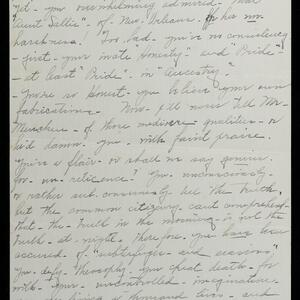 yet - your overwhelming admirer - that
"Aunt Sallie" - of New Orleans - has no
harshness! Too bad - you've no consistency
- just - your innate "Honesty" - and "Pride" -
- at least "Pride" - in "Ancestry".
You're so Honest - you believe your own
fabrications. Now - I'll never tell Mr.
Menschen - of those mediocre - qualities - or
he'd damn - you - with faint praise.
You've a flair - or shall we say genius
for - un - reticence? You - unconsciously -
or rather sub-consciously tell the truth,
but the common citizenry can't comprehend
that - the truth in the morning - is not the
truth - at - night. Therefore - you have been
accused - of "subterfuges - and evasions"
You - defy - Theosophy - you cheat death - for
with - your - uncontrolled - imagination
living - a thousand lives - and